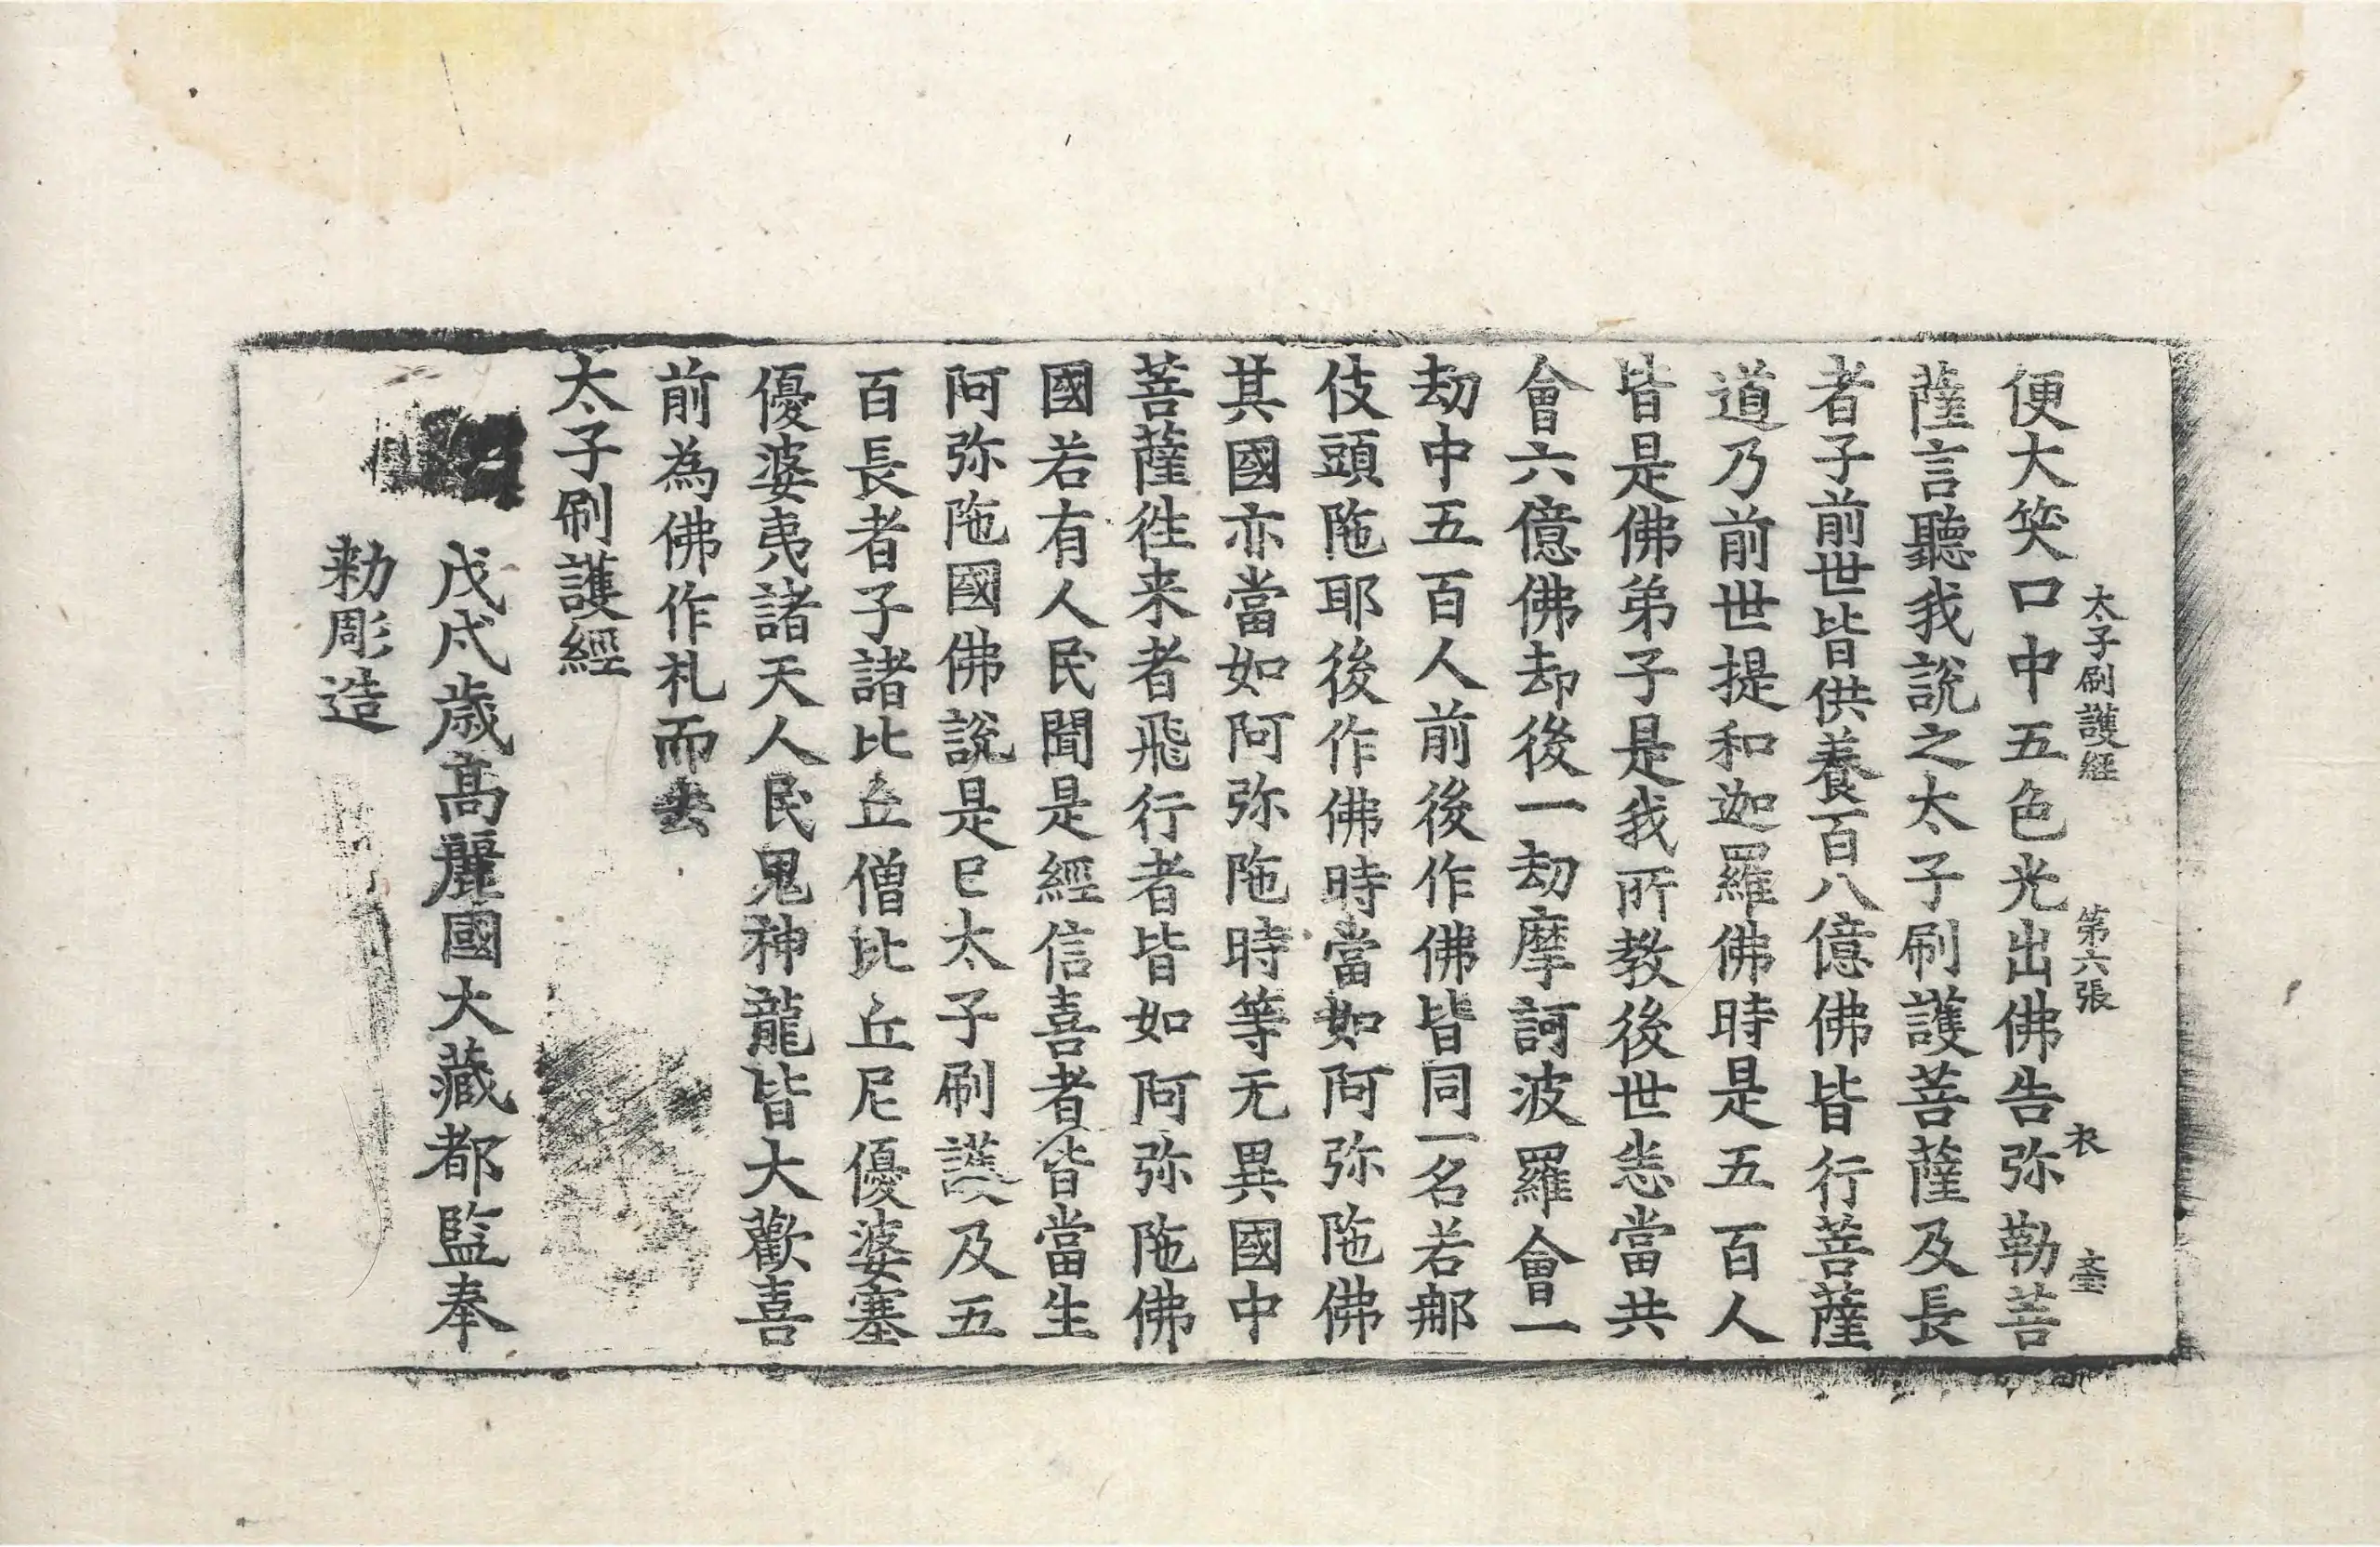 太子刷護經 第六張 衣
便大笑口中五色光出佛告弥勒菩
薩言聽我說之太子刷護菩薩及長
者子前世皆供養百八億佛皆行菩薩
道乃前世提和迦羅佛時是五百人
皆是佛弟子是我所教後世恙當共
會六億佛却後一劫摩訶波羅會一
劫中五百人前後作佛皆同一名若那
伎頭陁耶後作佛時當如阿弥陁佛
其國亦當如阿弥陁時等无異國中
菩薩徃来者飛行者皆如阿弥陁佛
國若有人民聞是經信喜者皆當生
阿弥陁國佛說是已太子刷護及五
百長者子諸比丘僧比丘尼優婆塞
優婆夷諸天人民鬼神龍皆大歡喜
前為佛作礼而去
太子刷護經
戊戌歲高麗國大藏都監奉
勑彫造